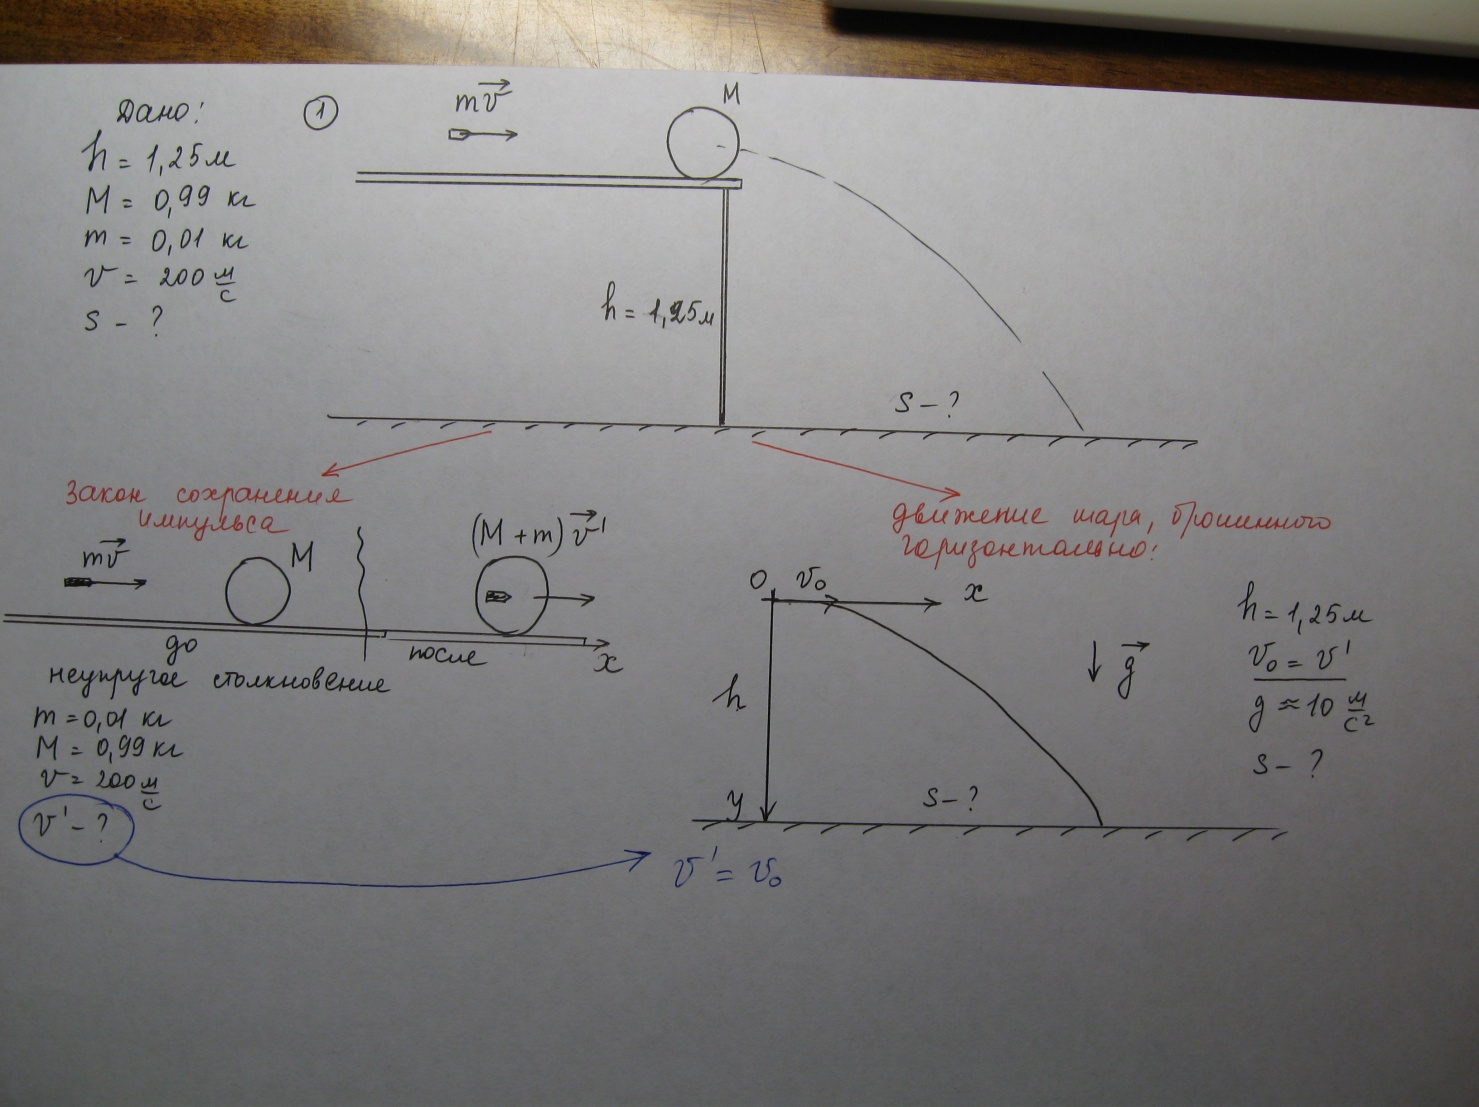 Дано:
h = 1,25 м
M = 0,99 кг
m = 0,01 кг
v = 200 м/с
s - ?
1
mv⃗
M
h = 1,25 м
s - ?
Закон сохранения
импульса
mv⃗
M
(M + m) v⃗'
до
после
x
неупругое столкновение
m = 0,01 кг
M = 0,99 кг
v = 200 м/с
v' - ?
движение шара, брошинного
горизонтально:
0
v₀
x
h
y
g⃗
s - ?
h = 1,25 м
v₀ = v'
g ≈ 10 м/с²
s - ?
v' = v₀